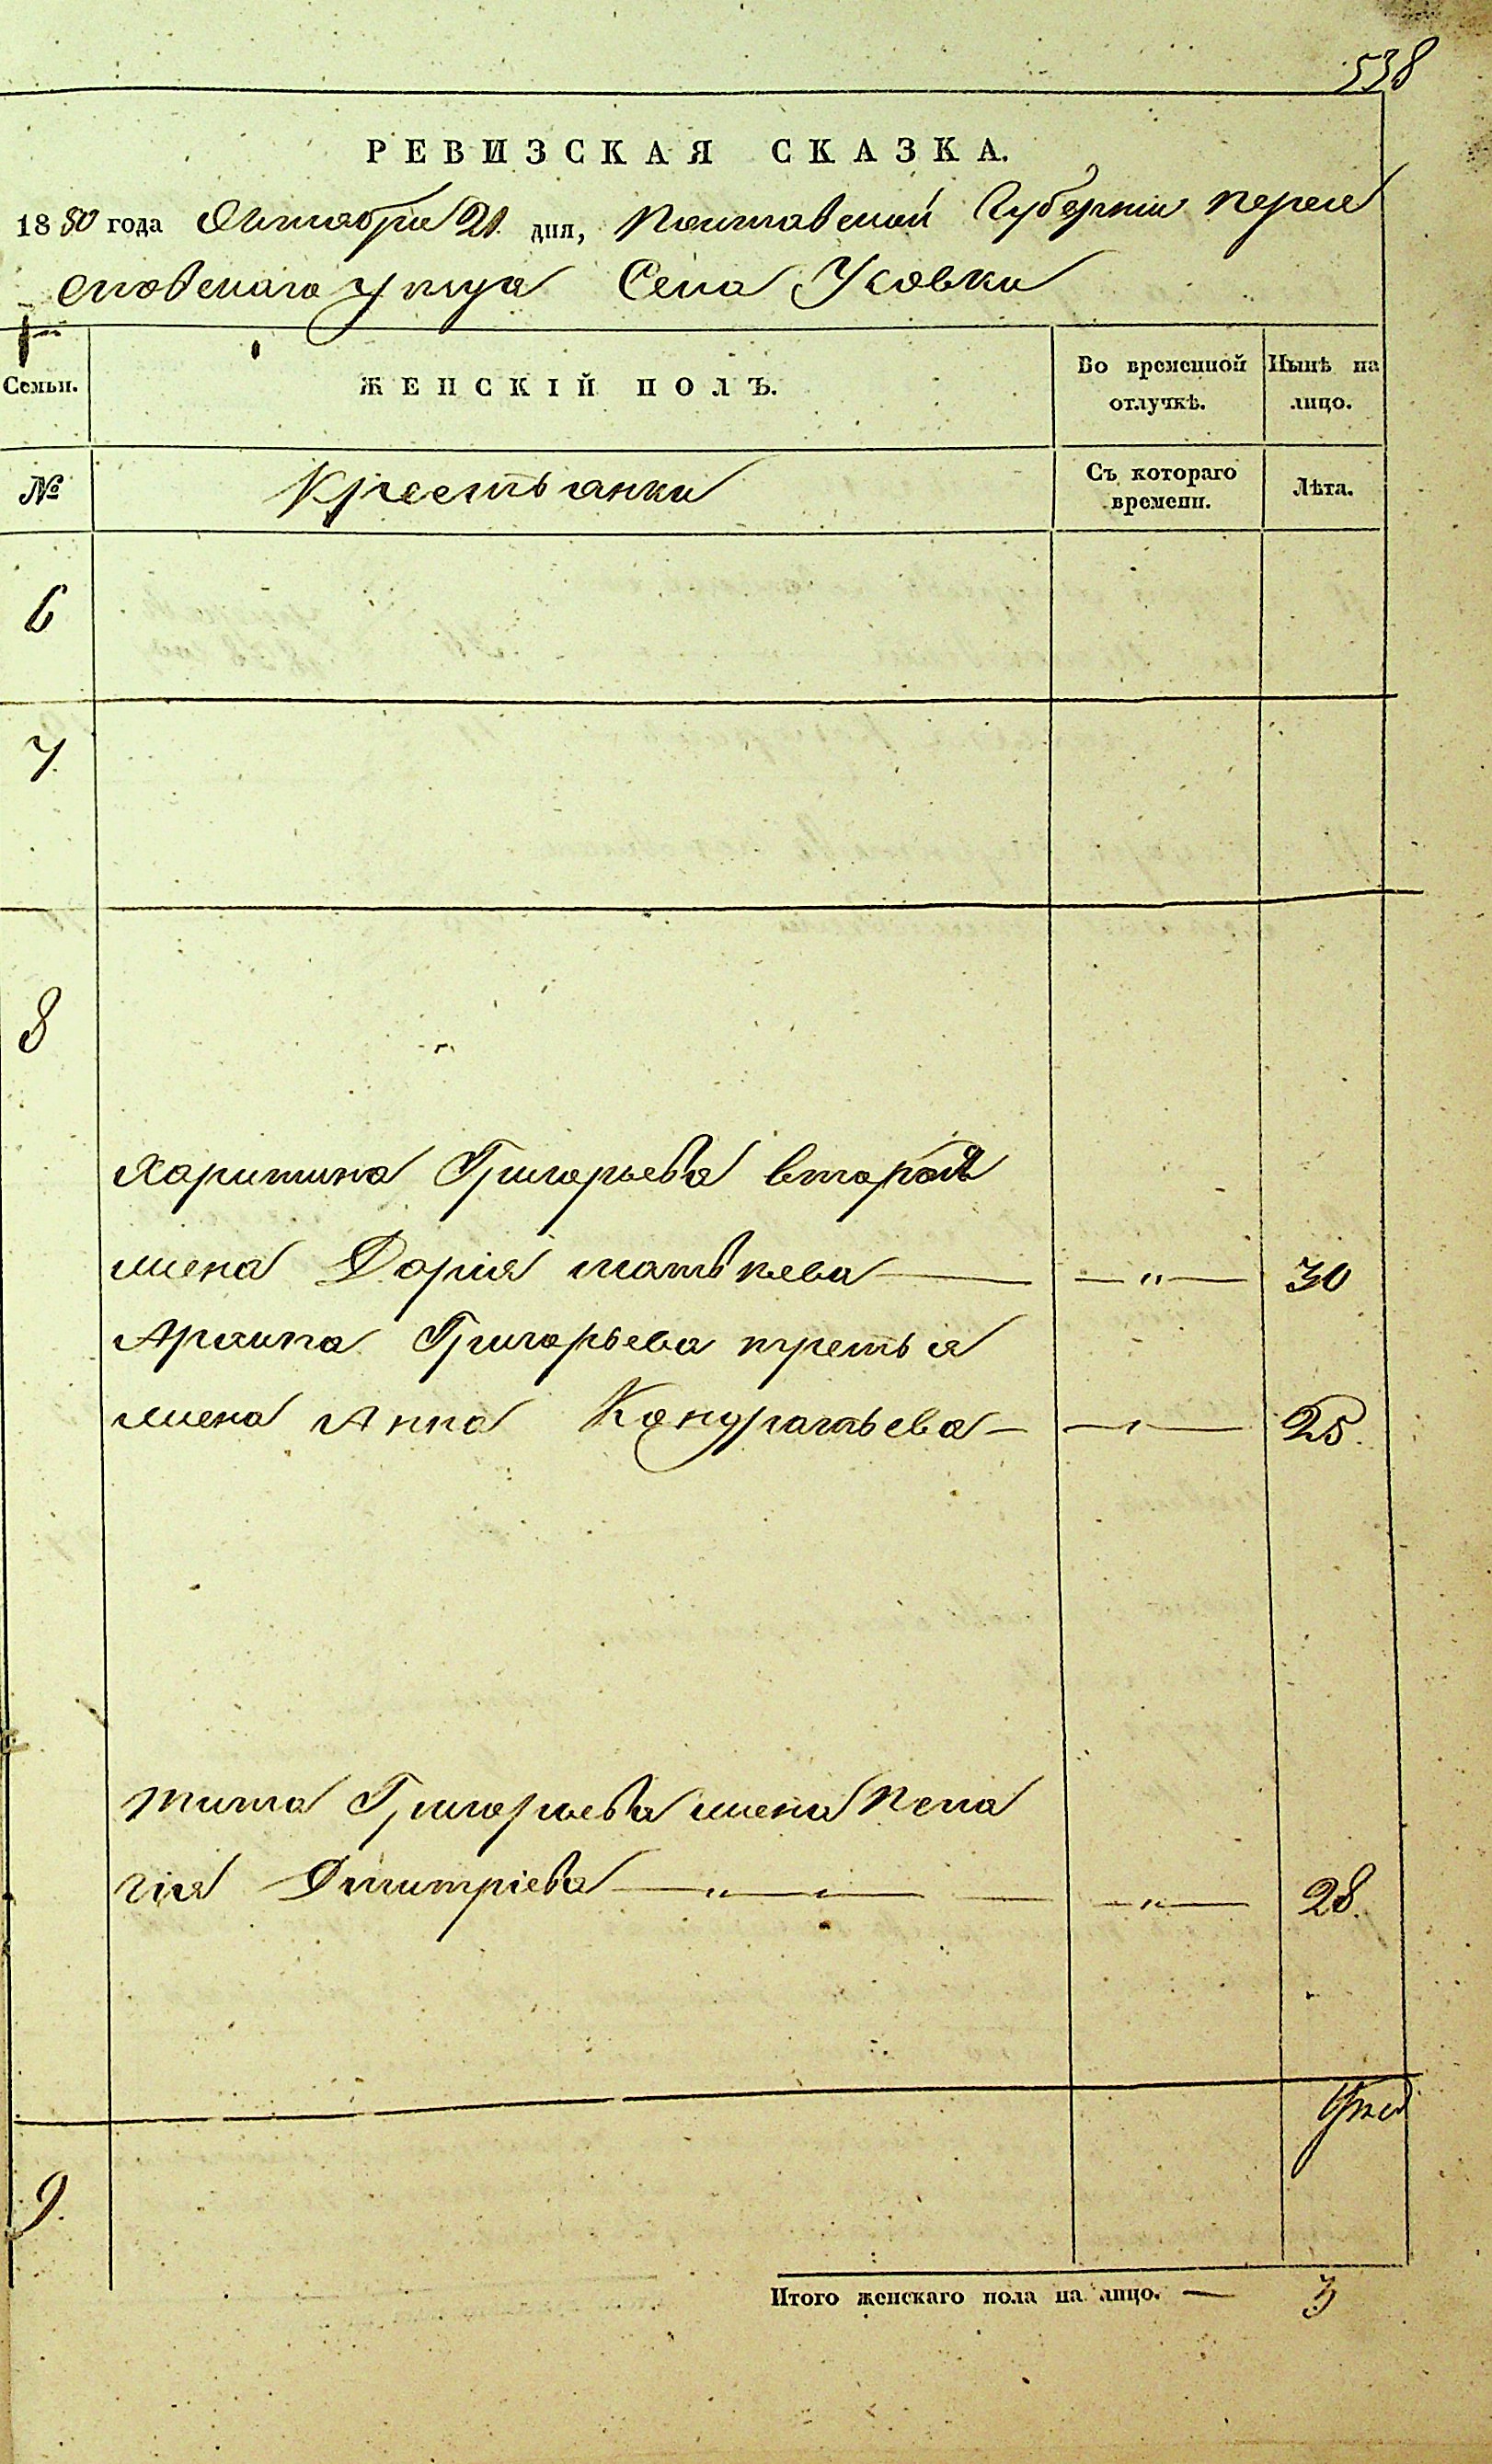 538
РЕВИЗСКАЯ СКАЗКА.
1850 года Октября 21 дня, Полтавской Губерніи Перея
словскаго уезда Села Усовки
Семьи.
ЖЕНСКІЙ ПОЛЪ.
Во временной отлучкѣ.
Нынѣ на лицо.
№
Крестьянки
Съ котораго времени.
Лѣта.
6
7
8
Харитина Григорьева вторая
жена Дарія Матвѣева — „ — 30
Архипа Григорьева третья
жена Анна Кондратьева — „ — 25.
Тита Григорьева жена Пела
гія Дмитріева — „ — „ — 28.
9.
Итого женскаго пола на лицо. — 3